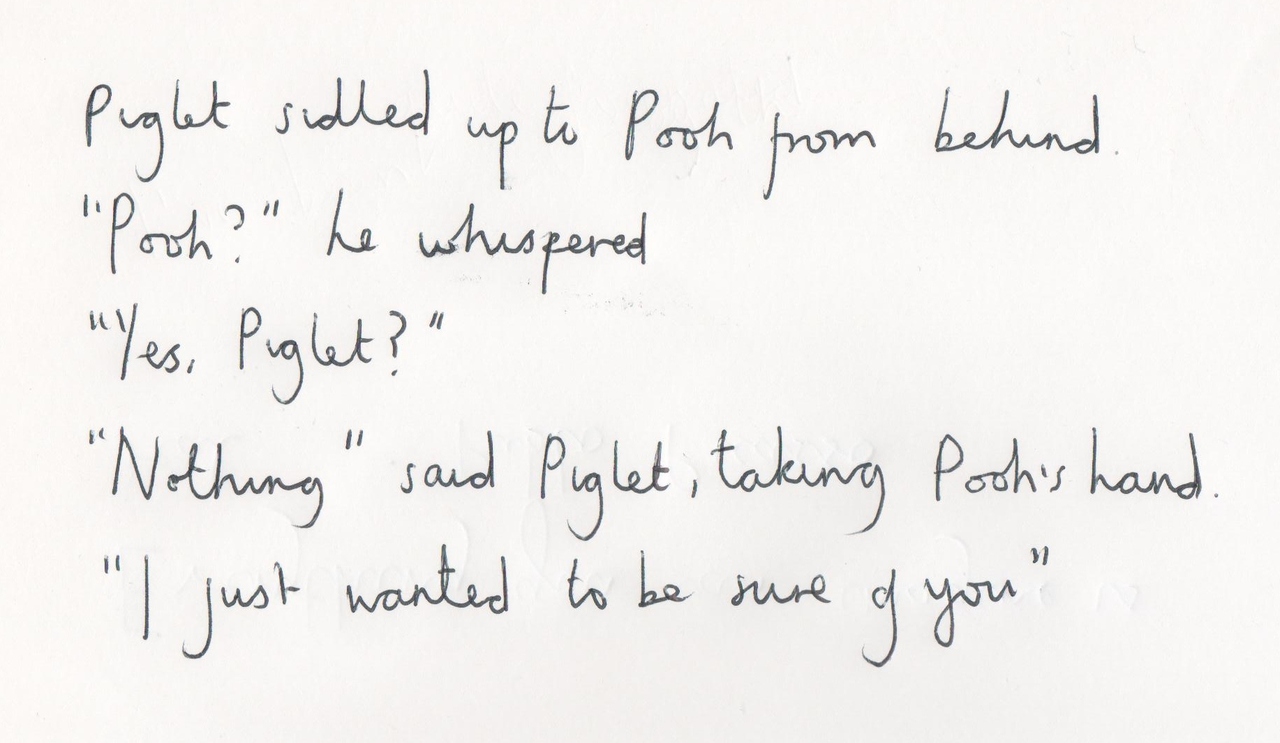 Piglet sidled up to Pooh from behind.
"Pooh?" he whispered
"Yes, Piglet?"
"Nothing" said Piglet, taking Pooh's hand.
"I just wanted to be sure of you"